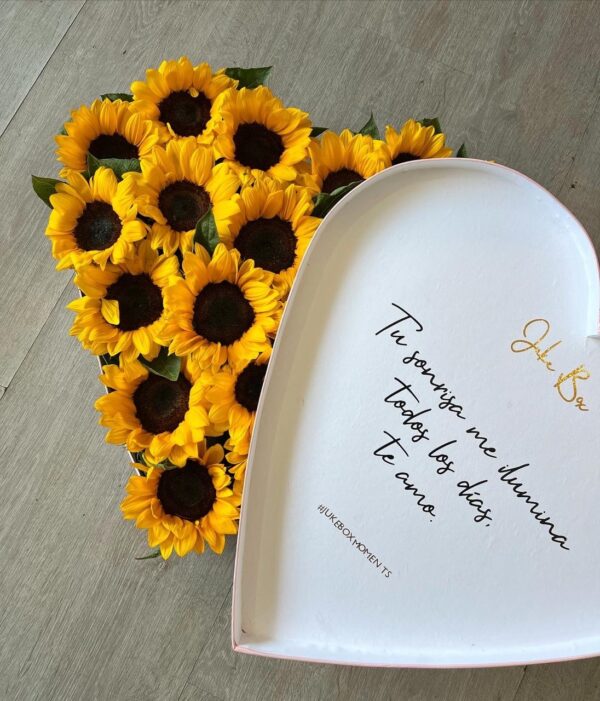 Juke Box
Tu sonrisa me ilumina
todos los días,
te amo.
#JUKEBOXMOMENTS